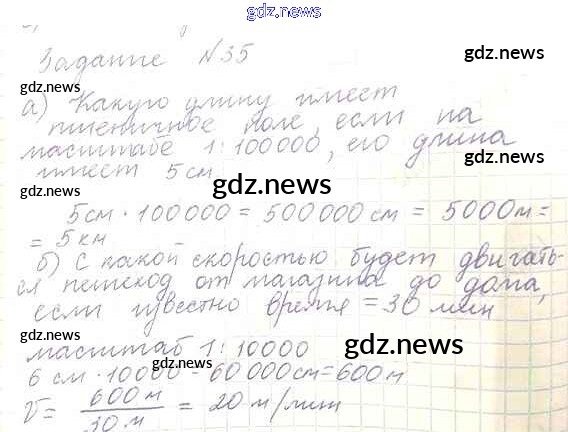 gdz.news
Задание №35
gdz.news
gdz.news
а) Какую длину имеет
пшеничное поле, если на
масштабе 1:100000, его длина
gdz.news
имеет 5 см
gdz.news
gdz.news
5см · 100000 = 500000 см = 5000м =
= 5 км
б) С какой скоростью будет двигать-
ся пешеход от магазина до дома,
если известно время = 30 мин
gdz.news
масштаб 1:10000
gdz.news
6 см · 10000 = 60000см = 600 м
gdz.news
V = 600 м / 30 м = 20 м/мин
gdz.news